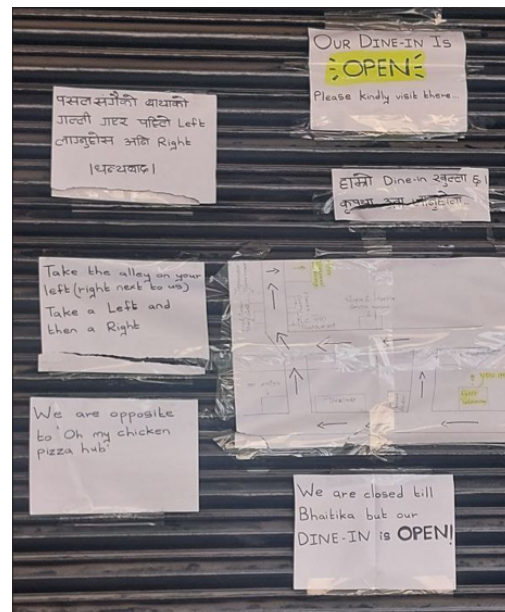 OUR DINE-IN IS
OPEN
Please kindly visit there...
पसल सगैको बायाको
गल्ली गएर पहिले Left
लाग्नुहोस अनि Right
।धन्यवाद।
हाम्रो Dine-in खुल्ला छ।
कृपया जानुहोला
Take the alley on your
left (right next to us)
Take a Left and
then a Right
We are opposite
to 'Oh my chicken
pizza hub'
We are closed till
Bhaitika but our
DINE-IN is OPEN!